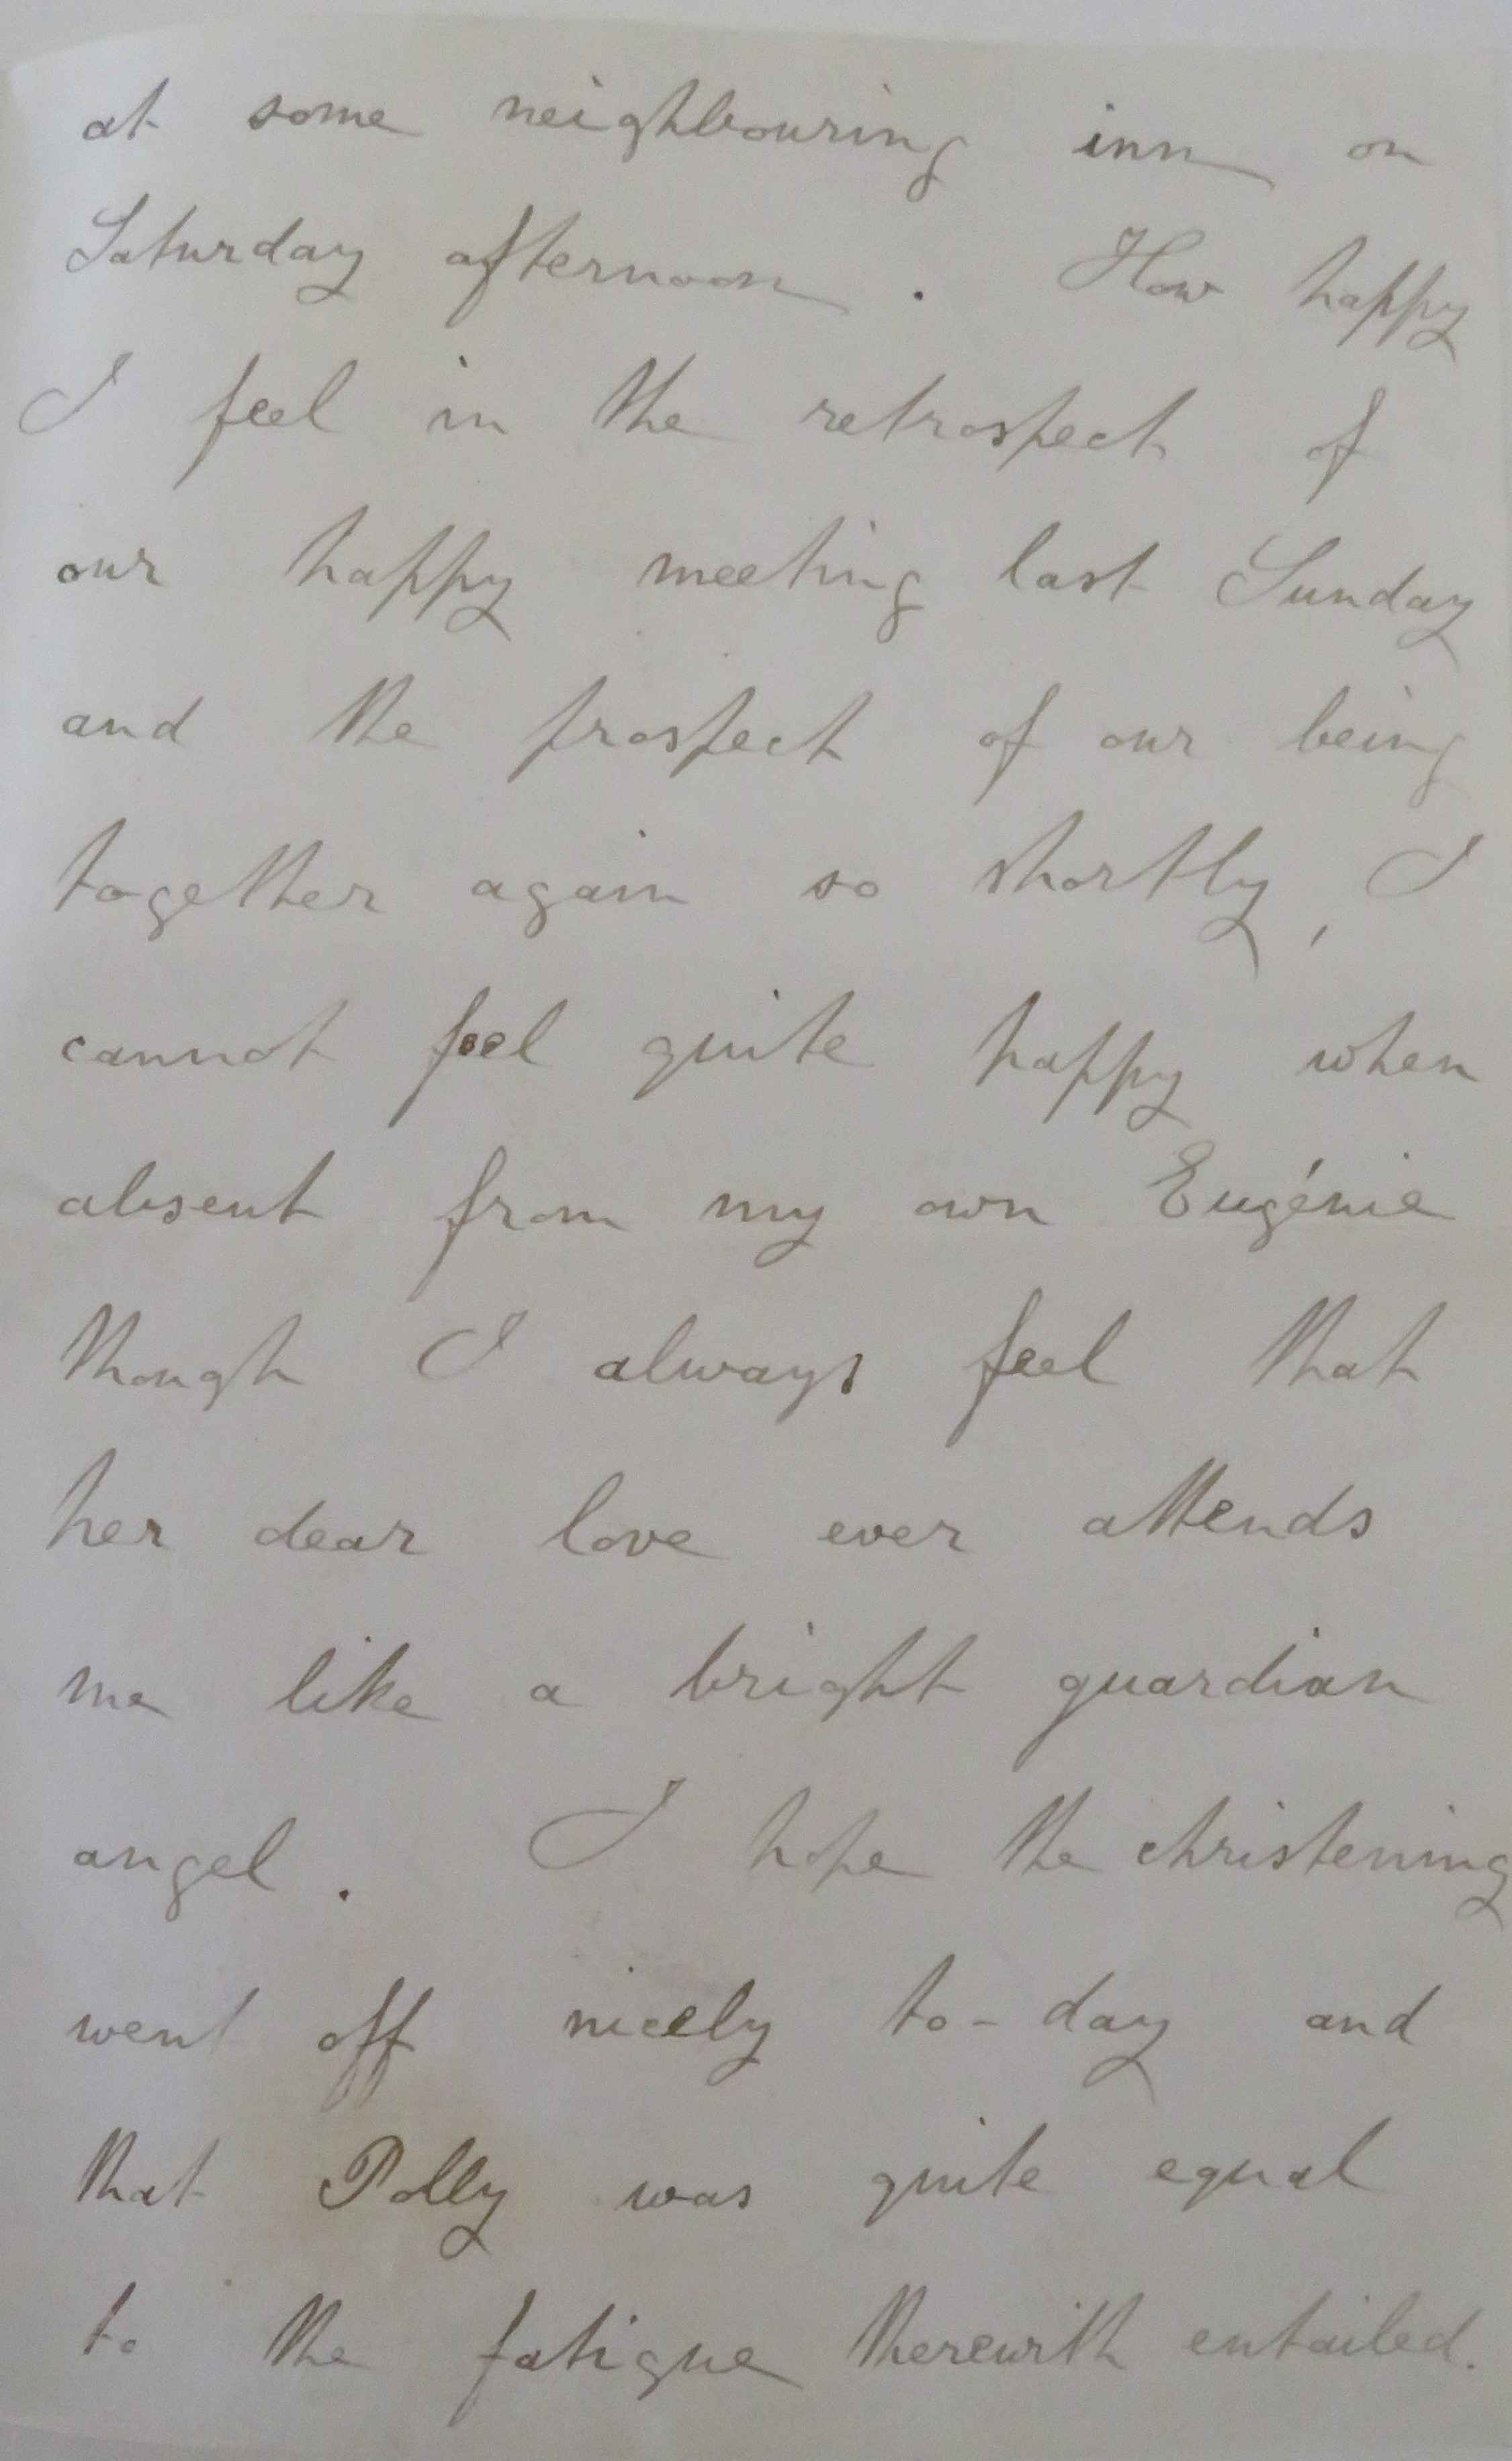 at some neighbouring inn on
Saturday afternoon. How happy
I feel in the retrospect of
our happy meeting last Sunday
and the prospect of our being
together again so shortly, I
cannot feel quite happy when
absent from my own Eugénie
though I always feel that
her dear love ever attends
me like a bright guardian
angel. I hope the christening
went off nicely to-day and
that Polly was quite equal
to the fatigue therewith entailed.